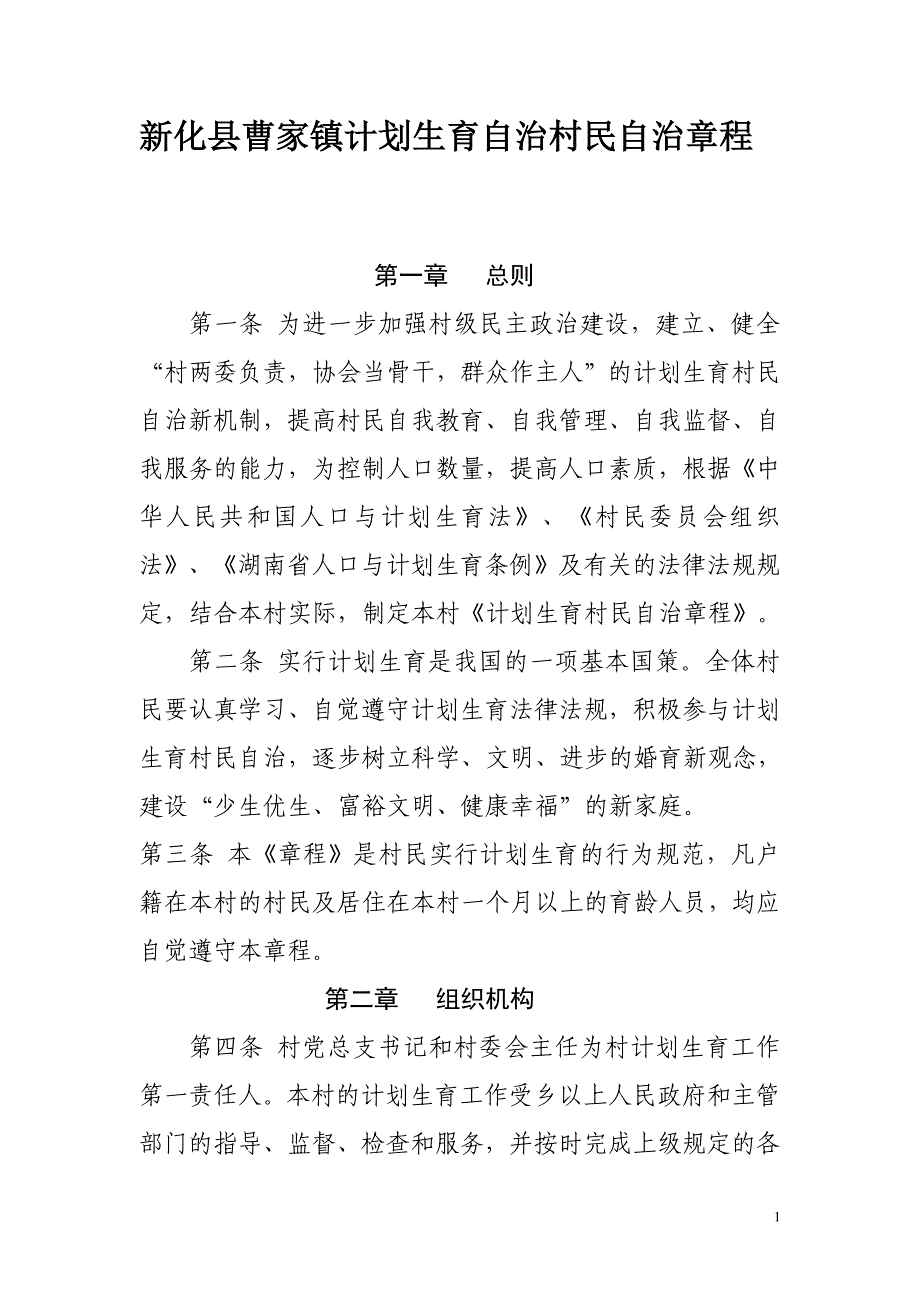 新化县曹家镇计划生育自治村民自治章程
第一章 总则
第一条 为进一步加强村级民主政治建设，建立、健全
“村两委负责，协会当骨干，群众作主人”的计划生育村民
自治新机制，提高村民自我教育、自我管理、自我监督、自
我服务的能力，为控制人口数量，提高人口素质，根据《中
华人民共和国人口与计划生育法》、《村民委员会组织
法》、《湖南省人口与计划生育条例》及有关的法律法规规
定，结合本村实际，制定本村《计划生育村民自治章程》。
第二条 实行计划生育是我国的一项基本国策。全体村
民要认真学习、自觉遵守计划生育法律法规，积极参与计划
生育村民自治，逐步树立科学、文明、进步的婚育新观念，
建设“少生优生、富裕文明、健康幸福”的新家庭。
第三条 本《章程》是村民实行计划生育的行为规范，凡户
籍在本村的村民及居住在本村一个月以上的育龄人员，均应
自觉遵守本章程。
第二章 组织机构
第四条 村党总支书记和村委会主任为村计划生育工作
第一责任人。本村的计划生育工作受乡以上人民政府和主管
部门的指导、监督、检查和服务，并按时完成上级规定的各
1